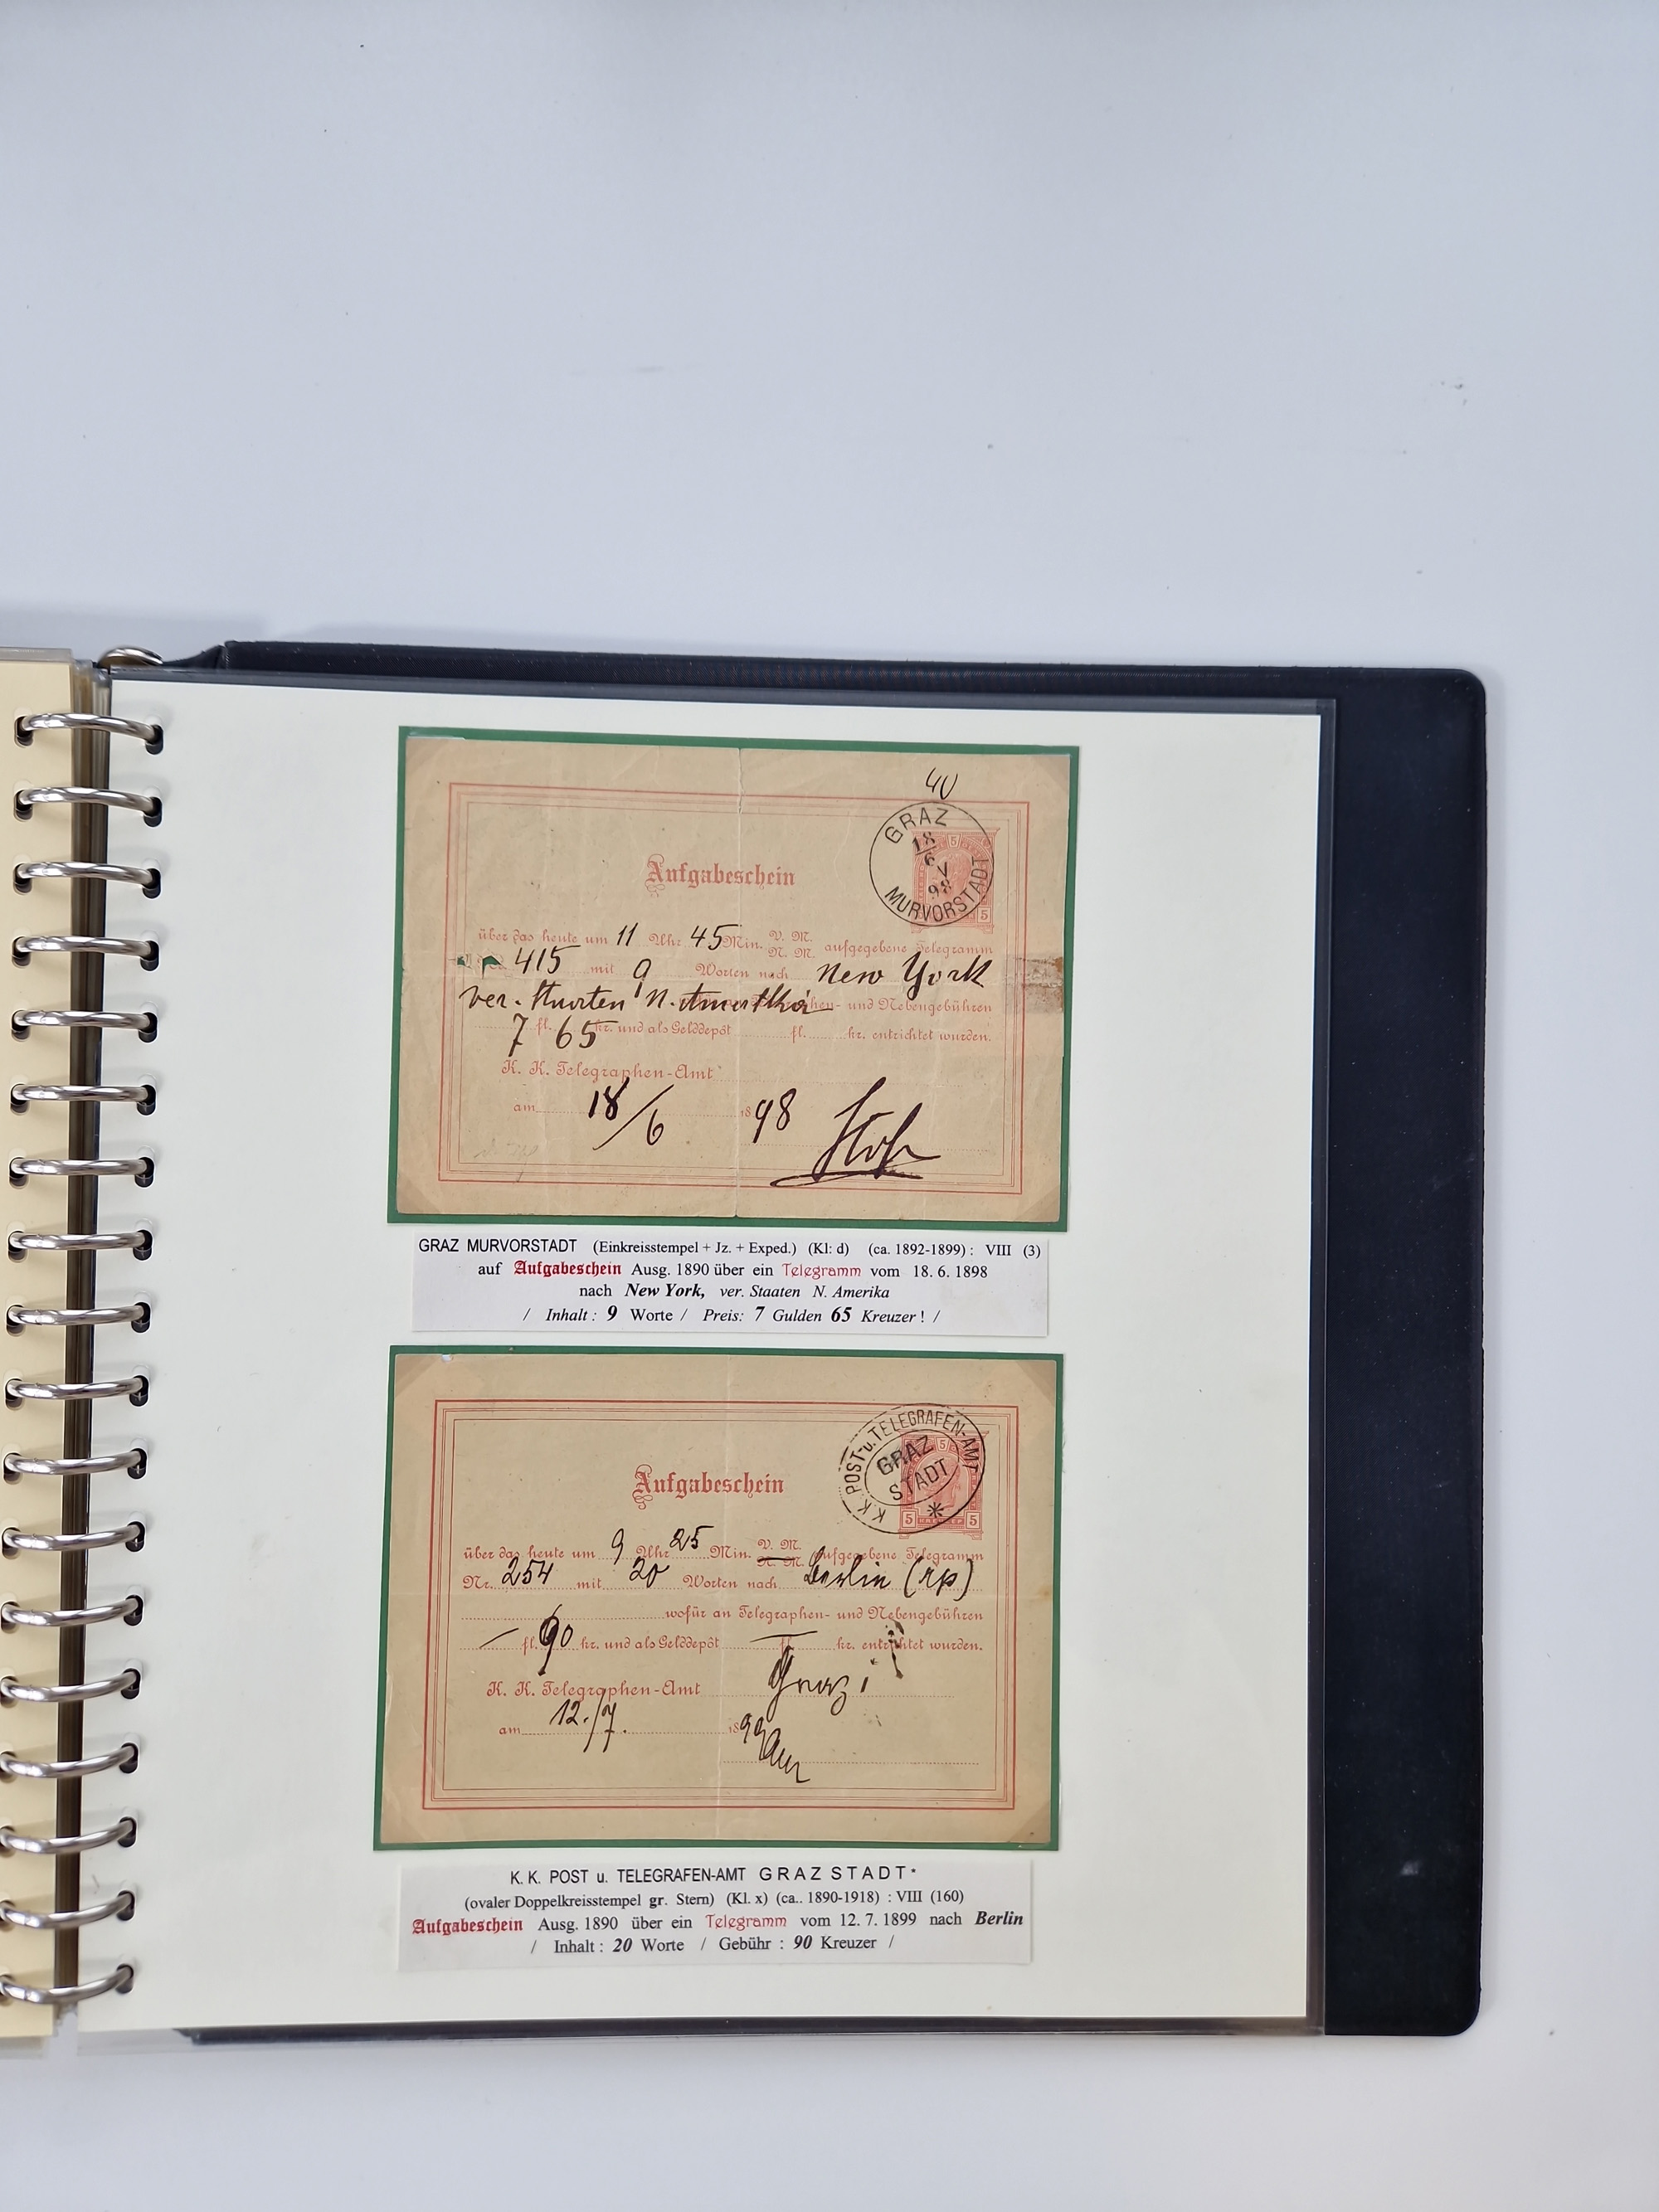 40
GRAZ
18
6
V
98
MURVORSTADT
5
5
Aufgabeschein
über das heute um 11 Uhr 45 Min. V. M. N. M. aufgegebene Telegramm
415 mit 9 Worten nach New York
ver. Staaten N. Amerika und Nebengebühren
7 fl. 65 kr. und als Gelddepôt fl. kr. entrichtet wurden.
K. K. Telegraphen-Amt
am 18/6 1898
GRAZ MURVORSTADT (Einkreisstempel + Jz. + Exped.) (Kl: d) (ca. 1892-1899) : VIII (3)
auf Aufgabeschein Ausg. 1890 über ein Telegramm vom 18. 6. 1898
nach New York, ver. Staaten N. Amerika
/ Inhalt : 9 Worte / Preis: 7 Gulden 65 Kreuzer ! /
K.K. POST- u. TELEGRAFEN-AMT
GRAZ
STADT
*
5
5 5
Aufgabeschein
über das heute um 9 Uhr 25 Min. V. M. N. M. aufgegebene Telegramm
Nr. 254 mit 20 Worten nach Berlin (rp)
wofür an Telegraphen- und Nebengebühren
— fl. 90 kr. und als Gelddepôt — fl. kr. entrichtet wurden.
K. K. Telegraphen-Amt Graz
am 12./7. 1899
K. K. POST u. TELEGRAFEN-AMT GRAZ STADT *
(ovaler Doppelkreisstempel gr. Stern) (Kl. x) (ca.. 1890-1918) : VIII (160)
Aufgabeschein Ausg. 1890 über ein Telegramm vom 12. 7. 1899 nach Berlin
/ Inhalt : 20 Worte / Gebühr : 90 Kreuzer /